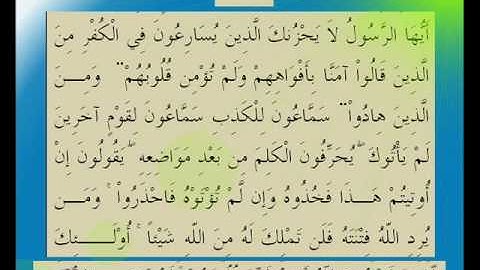 أَيُّهَا الرَّسُولُ لاَ يَحْزُنكَ الَّذِينَ يُسَارِعُونَ فِي الْكُفْرِ مِنَ
الَّذِينَ قَالُواْ آمَنَّا بِأَفْوَاهِهِمْ وَلَمْ تُؤْمِن قُلُوبُهُمْ وَمِـــنَ
الَّذِينَ هَادُواْ سَمَّاعُونَ لِلْكَذِبِ سَمَّاعُونَ لِقَوْمٍ آخَرِينَ
لَمْ يَأْتُوكَ يُحَرِّفُونَ الْكَلِمَ مِن بَعْدِ مَوَاضِعِهِ يَقُولُونَ إِنْ
أُوتِيتُمْ هَـــذَا فَخُذُوهُ وَإِن لَّمْ تُؤْتَوْهُ فَاحْذَرُواْ وَمَـــن
يُرِدِ اللّهُ فِتْنَتَهُ فَلَن تَمْلِكَ لَهُ مِنَ اللّهِ شَيْئًا أُوْلَـــــئِكَ